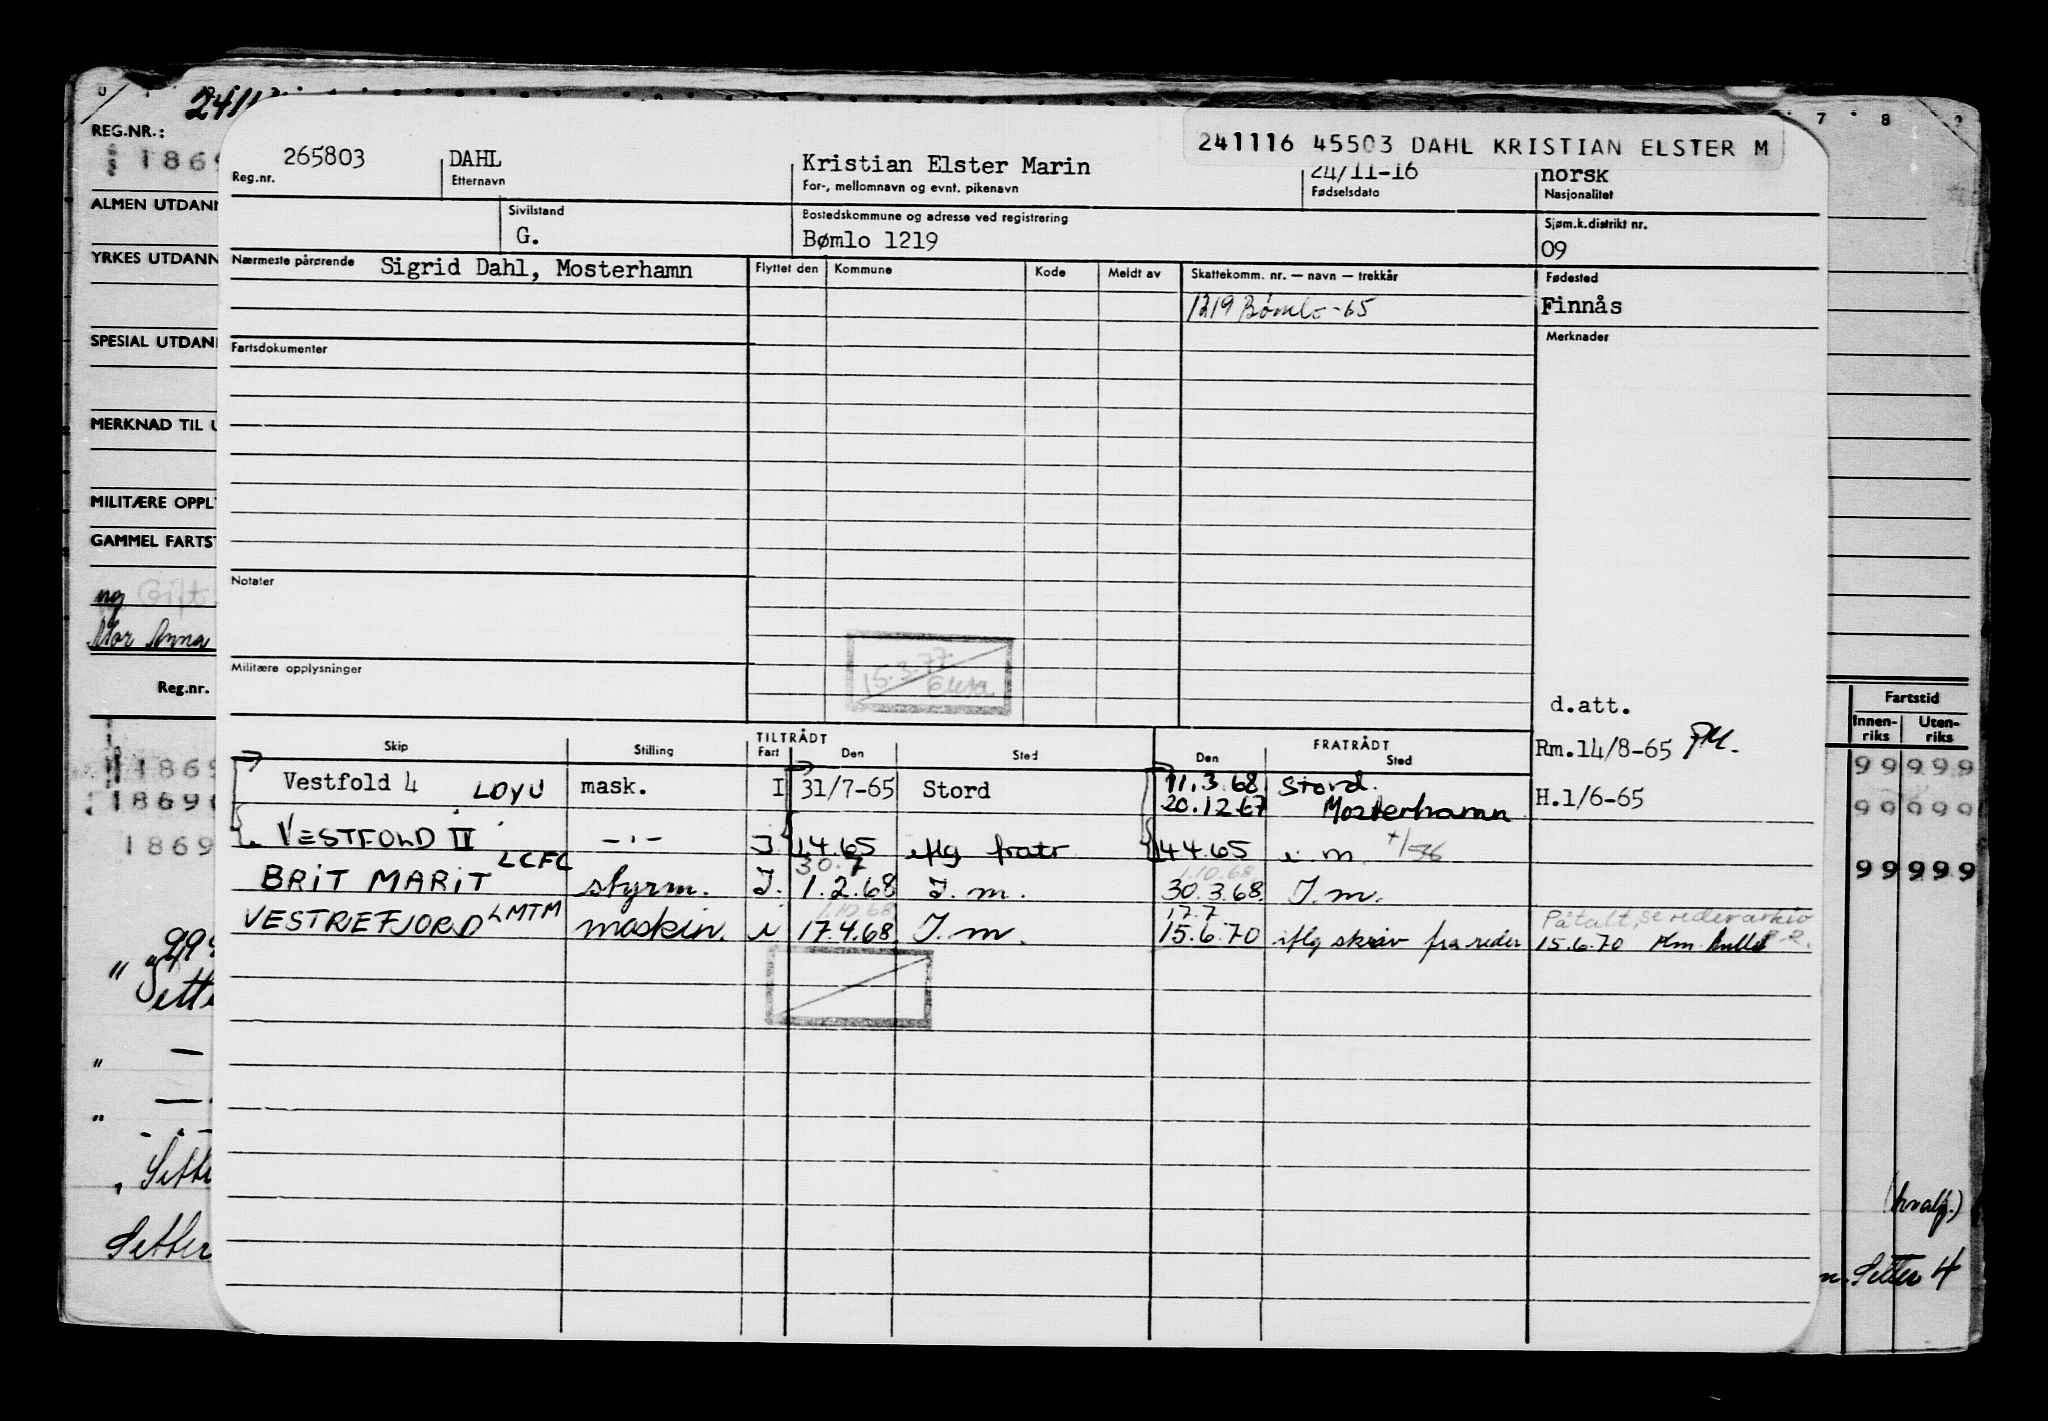 241
REG.NR.:
1869
ALMEN UTDANN
YRKES UTDANN
SPESIAL UTDAN
MERKNAD TIL U
MILITÆRE OPPL
GAMMEL FARTST
ug Gift
Mor Anna
Reg.nr.
1869
1869
1869
999
Sette
Sette
Setter
7 8 9
Fartstid
Innen-riks Uten-riks
99 999
99 999
99 999
(hvalf.)
Setter 4
241116 45503 DAHL KRISTIAN ELSTER M
265803 DAHL Kristian Elster Marin 24/11-16 norsk
Reg.nr. Etternavn For-, mellomnavn og evnt. pikenavn Fødselsdato Nasjonalitet
Sivilstand Bostedskommune og adresse ved registrering Sjøm.k.distrikt nr.
G. Bømlo 1219 09
Nærmeste pårørende Sigrid Dahl, Mosterhamn Flyttet den Kommune Kode Meldt av Skattekomm. nr. — navn — trekkår Fødested
1219 Bømlo -65 Finnås
Fartsdokumenter Merknader
Notater
Militære opplysninger
15.3.77
d.att.
TILTRÅDT FRATRÅDT
Skip Stilling Fart Den Sted Den Sted Rm.14/8-65
Vestfold 4 LDYU mask. I 31/7-65 Stord 11.3.68 Stord.
20.12.67 Mosterhamn H.1/6-65
VESTFOLD II — " — I 1.4.65 iflg fratr 4.4.65 i m.
30.7 1.10.68
BRIT MARIT LCFL styrm. I. 1.2.68 I.m. 30.3.68 I.m.
1.10.68 17.7 Påtalt, se rederarkiv
VESTREFJORD LMTM maskin. i 17.4.68 I.m. 15.6.70 iflg skriv fra reder 15.6.70